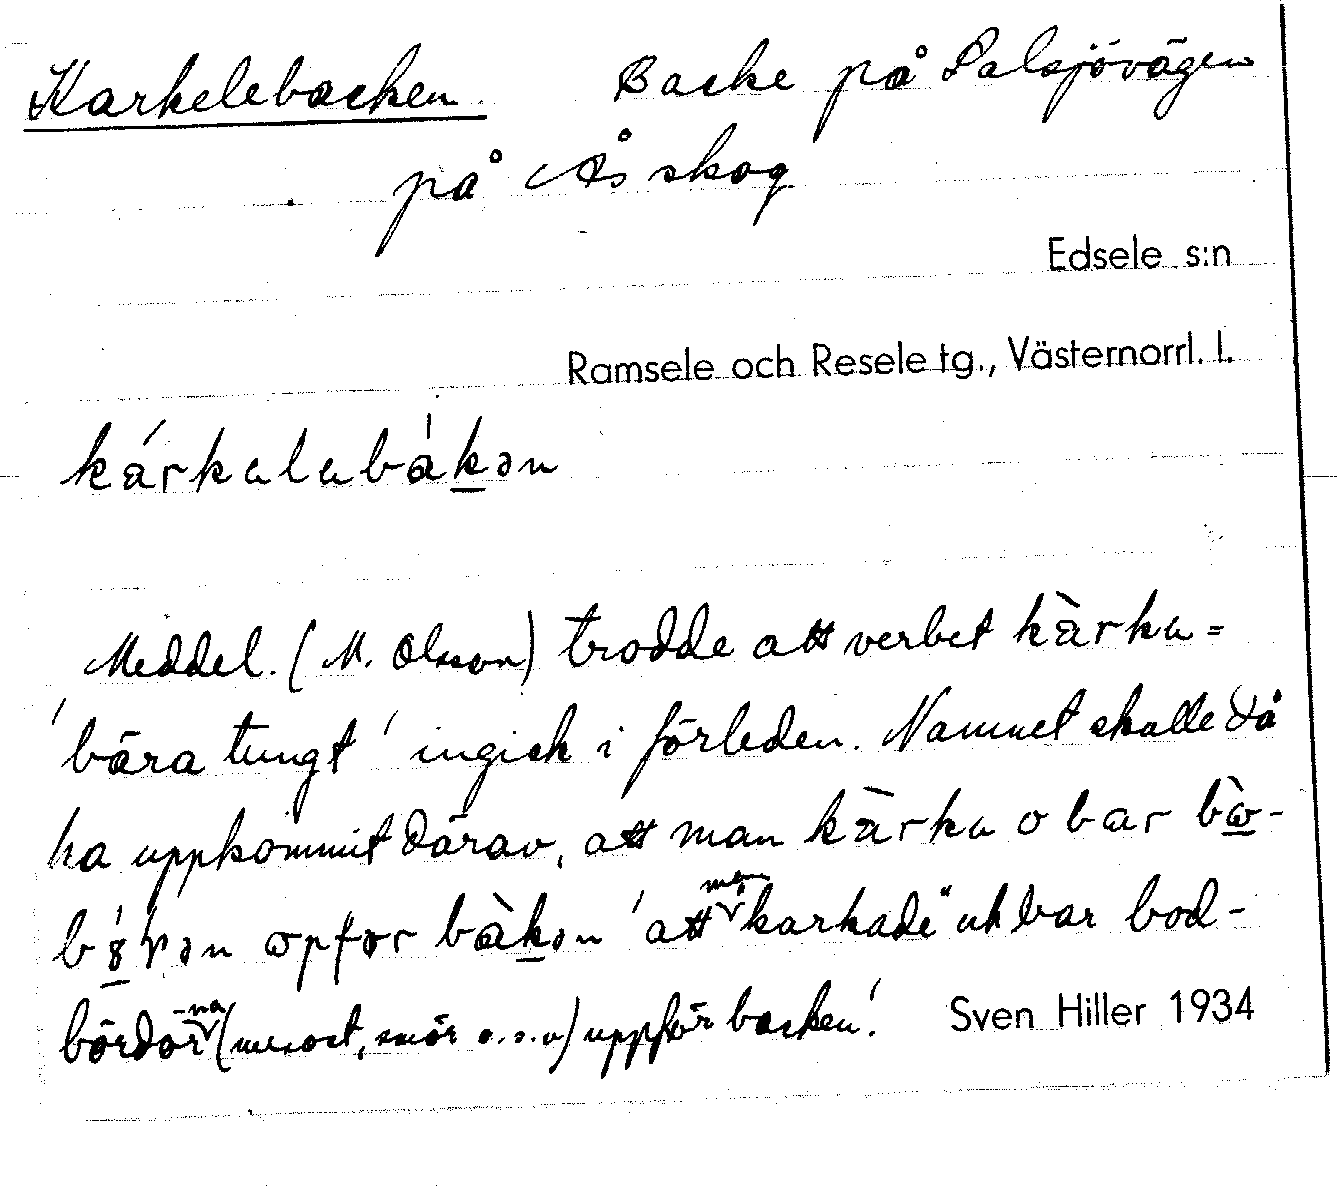 Karkelebacken. Backe på Salsjövägen
på Ås skog
Edsele s:n
Ramsele och Resele tg., Västernorrl. l.
kárkalabák̲ən
Meddel. (M. Olsson) trodde att verbet kàrka =
'bära tungt' ingick i förleden. Namnet skulle då
ha uppkommit därav, att man kàrka o bar
opfor bàk̲ən 'att man "karkade" och bar bod-
bördorna (mesost, smör o.s.v) uppför backen'.
Sven Hiller 1934